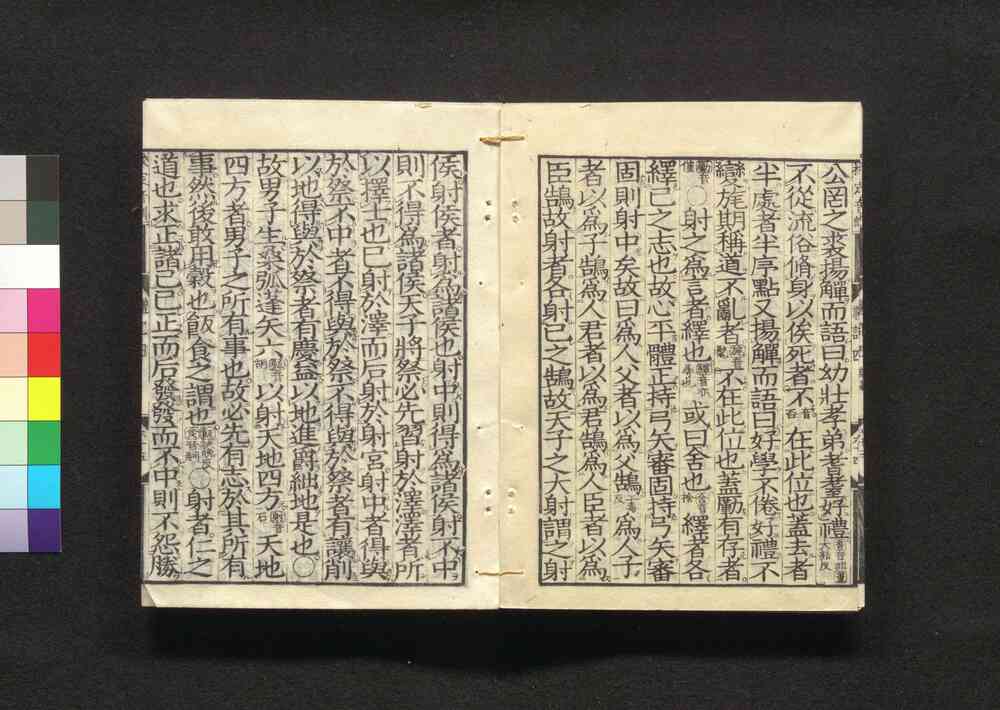 公罔之裘揚觶而語曰幼壯孝弟耆耋好禮
不從流俗脩身以俟死者不在此位也蓋去者
半處者半序點又揚觶而語曰好學不倦好禮不
變旄期稱道不亂者不在此位也蓋勵有存者
射之爲言者繹也或曰舍也繹者各
繹己之志也故心平體正持弓矢審固持弓矢審
固則射中矣故曰爲人父者以爲父鵠爲人子
者以爲子鵠爲人君者以爲君鵠爲人臣者以爲
臣鵠故射者各射己之鵠故天子之大射謂之射
侯射侯者射爲諸侯也射中則得爲諸侯射不中
則不得爲諸侯天子將祭必先習射於澤澤者所
以擇士也已射於澤而后射於射宮射中者得與
於祭不中者不得與於祭不得與於祭者有讓削
以地得與於祭者有慶益以地進爵絀地是也○
故男子生桑弧蓬矢六以射天地四方天地
四方者男子之所有事也故必先有志於其所有
事然後敢用穀也飯食之謂也○射者仁之
道也求正諸己己正而后發發而不中則不怨勝